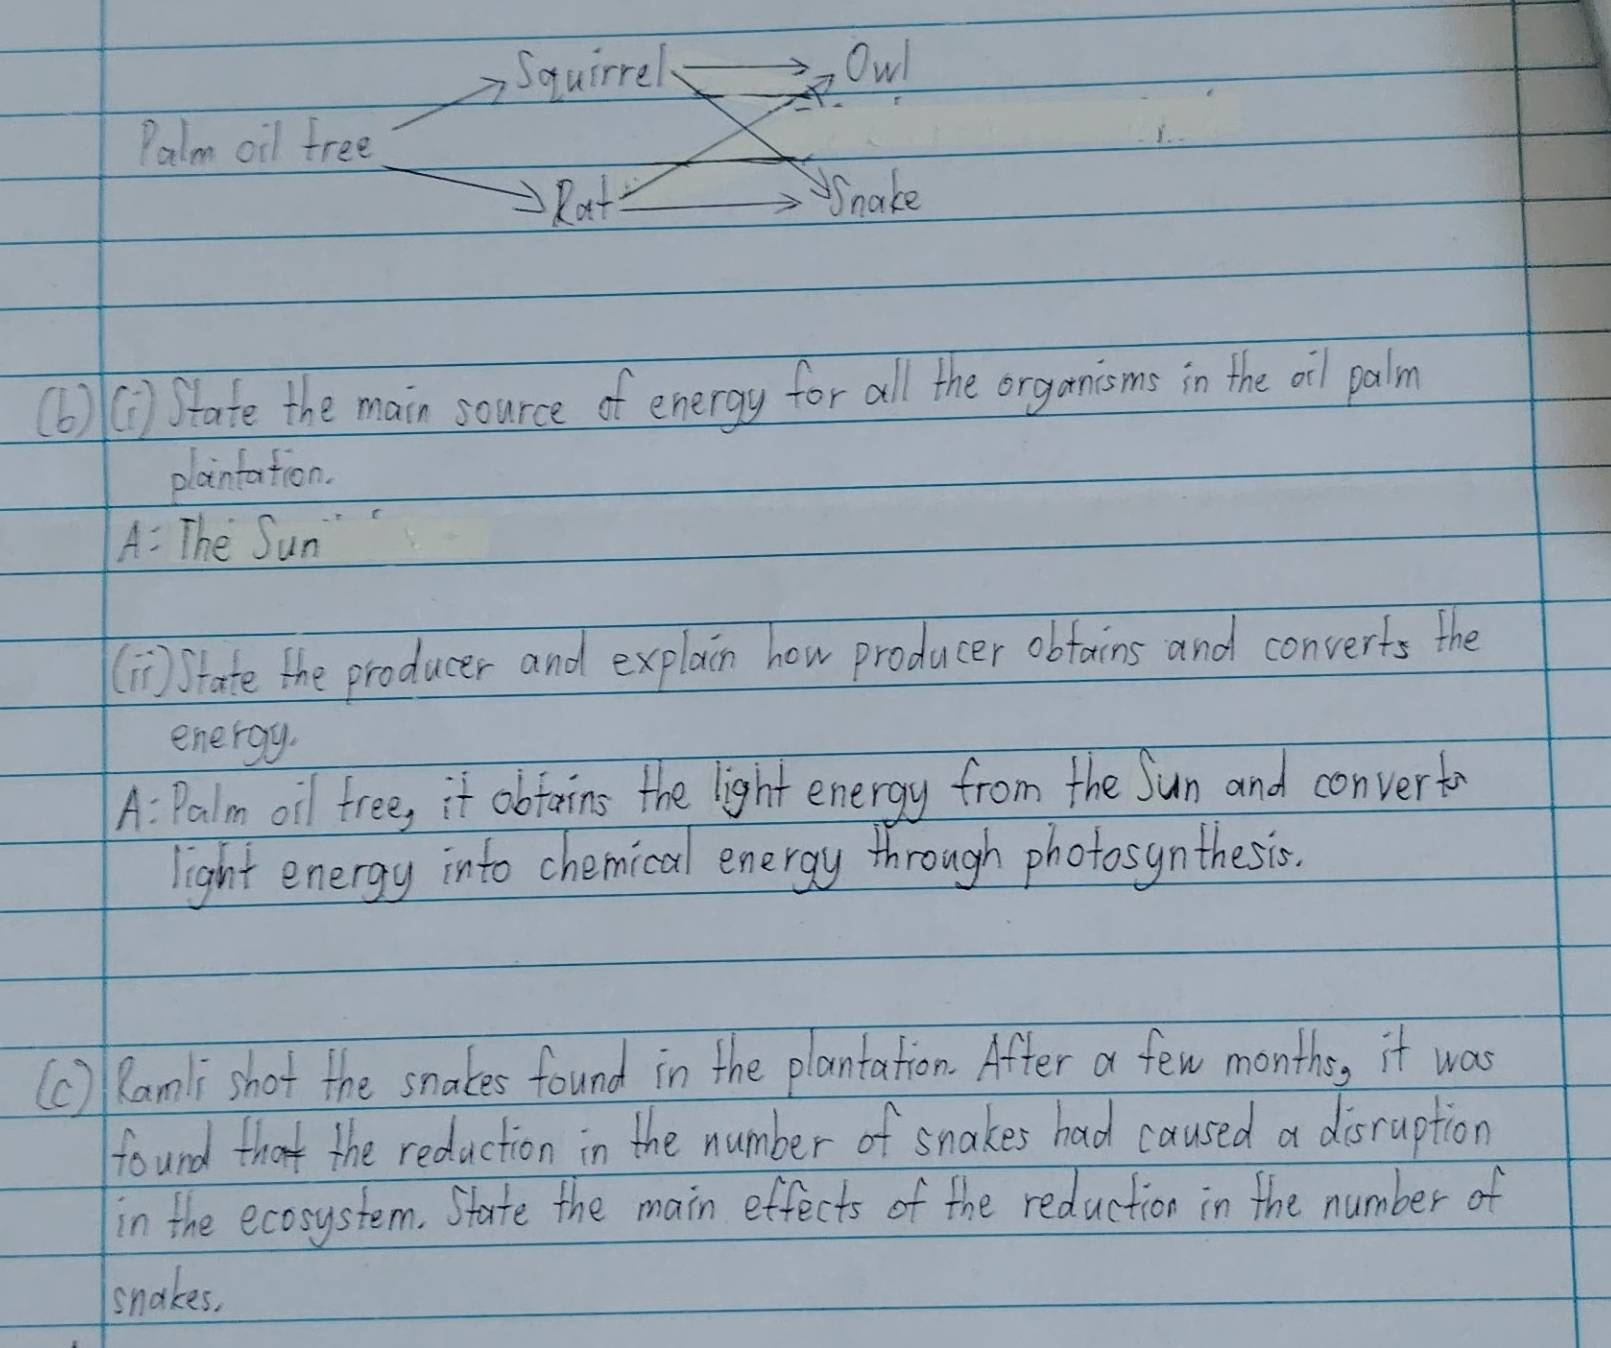 Squirrel Owl
Palm oil tree
Rat Snake
(b) (i) State the main source of energy for all the organisms in the oil palm
plaintation.
A: The Sun
(ii) State the producer and explain how producer obtains and converts the
energy.
A: Palm oil tree, it obtains the light energy from the Sun and converts
light energy into chemical energy through photosynthesis.
(c) Ramli shot the snakes found in the plantation. After a few months, it was
found that the reduction in the number of snakes had caused a disruption
in the ecosystem. State the main effects of the reduction in the number of
snakes.